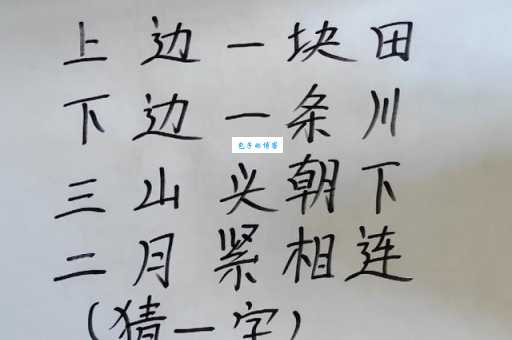 上边一块田
下边一条川
包子的博客
三山头朝下
二月紧相连
(猜一字)